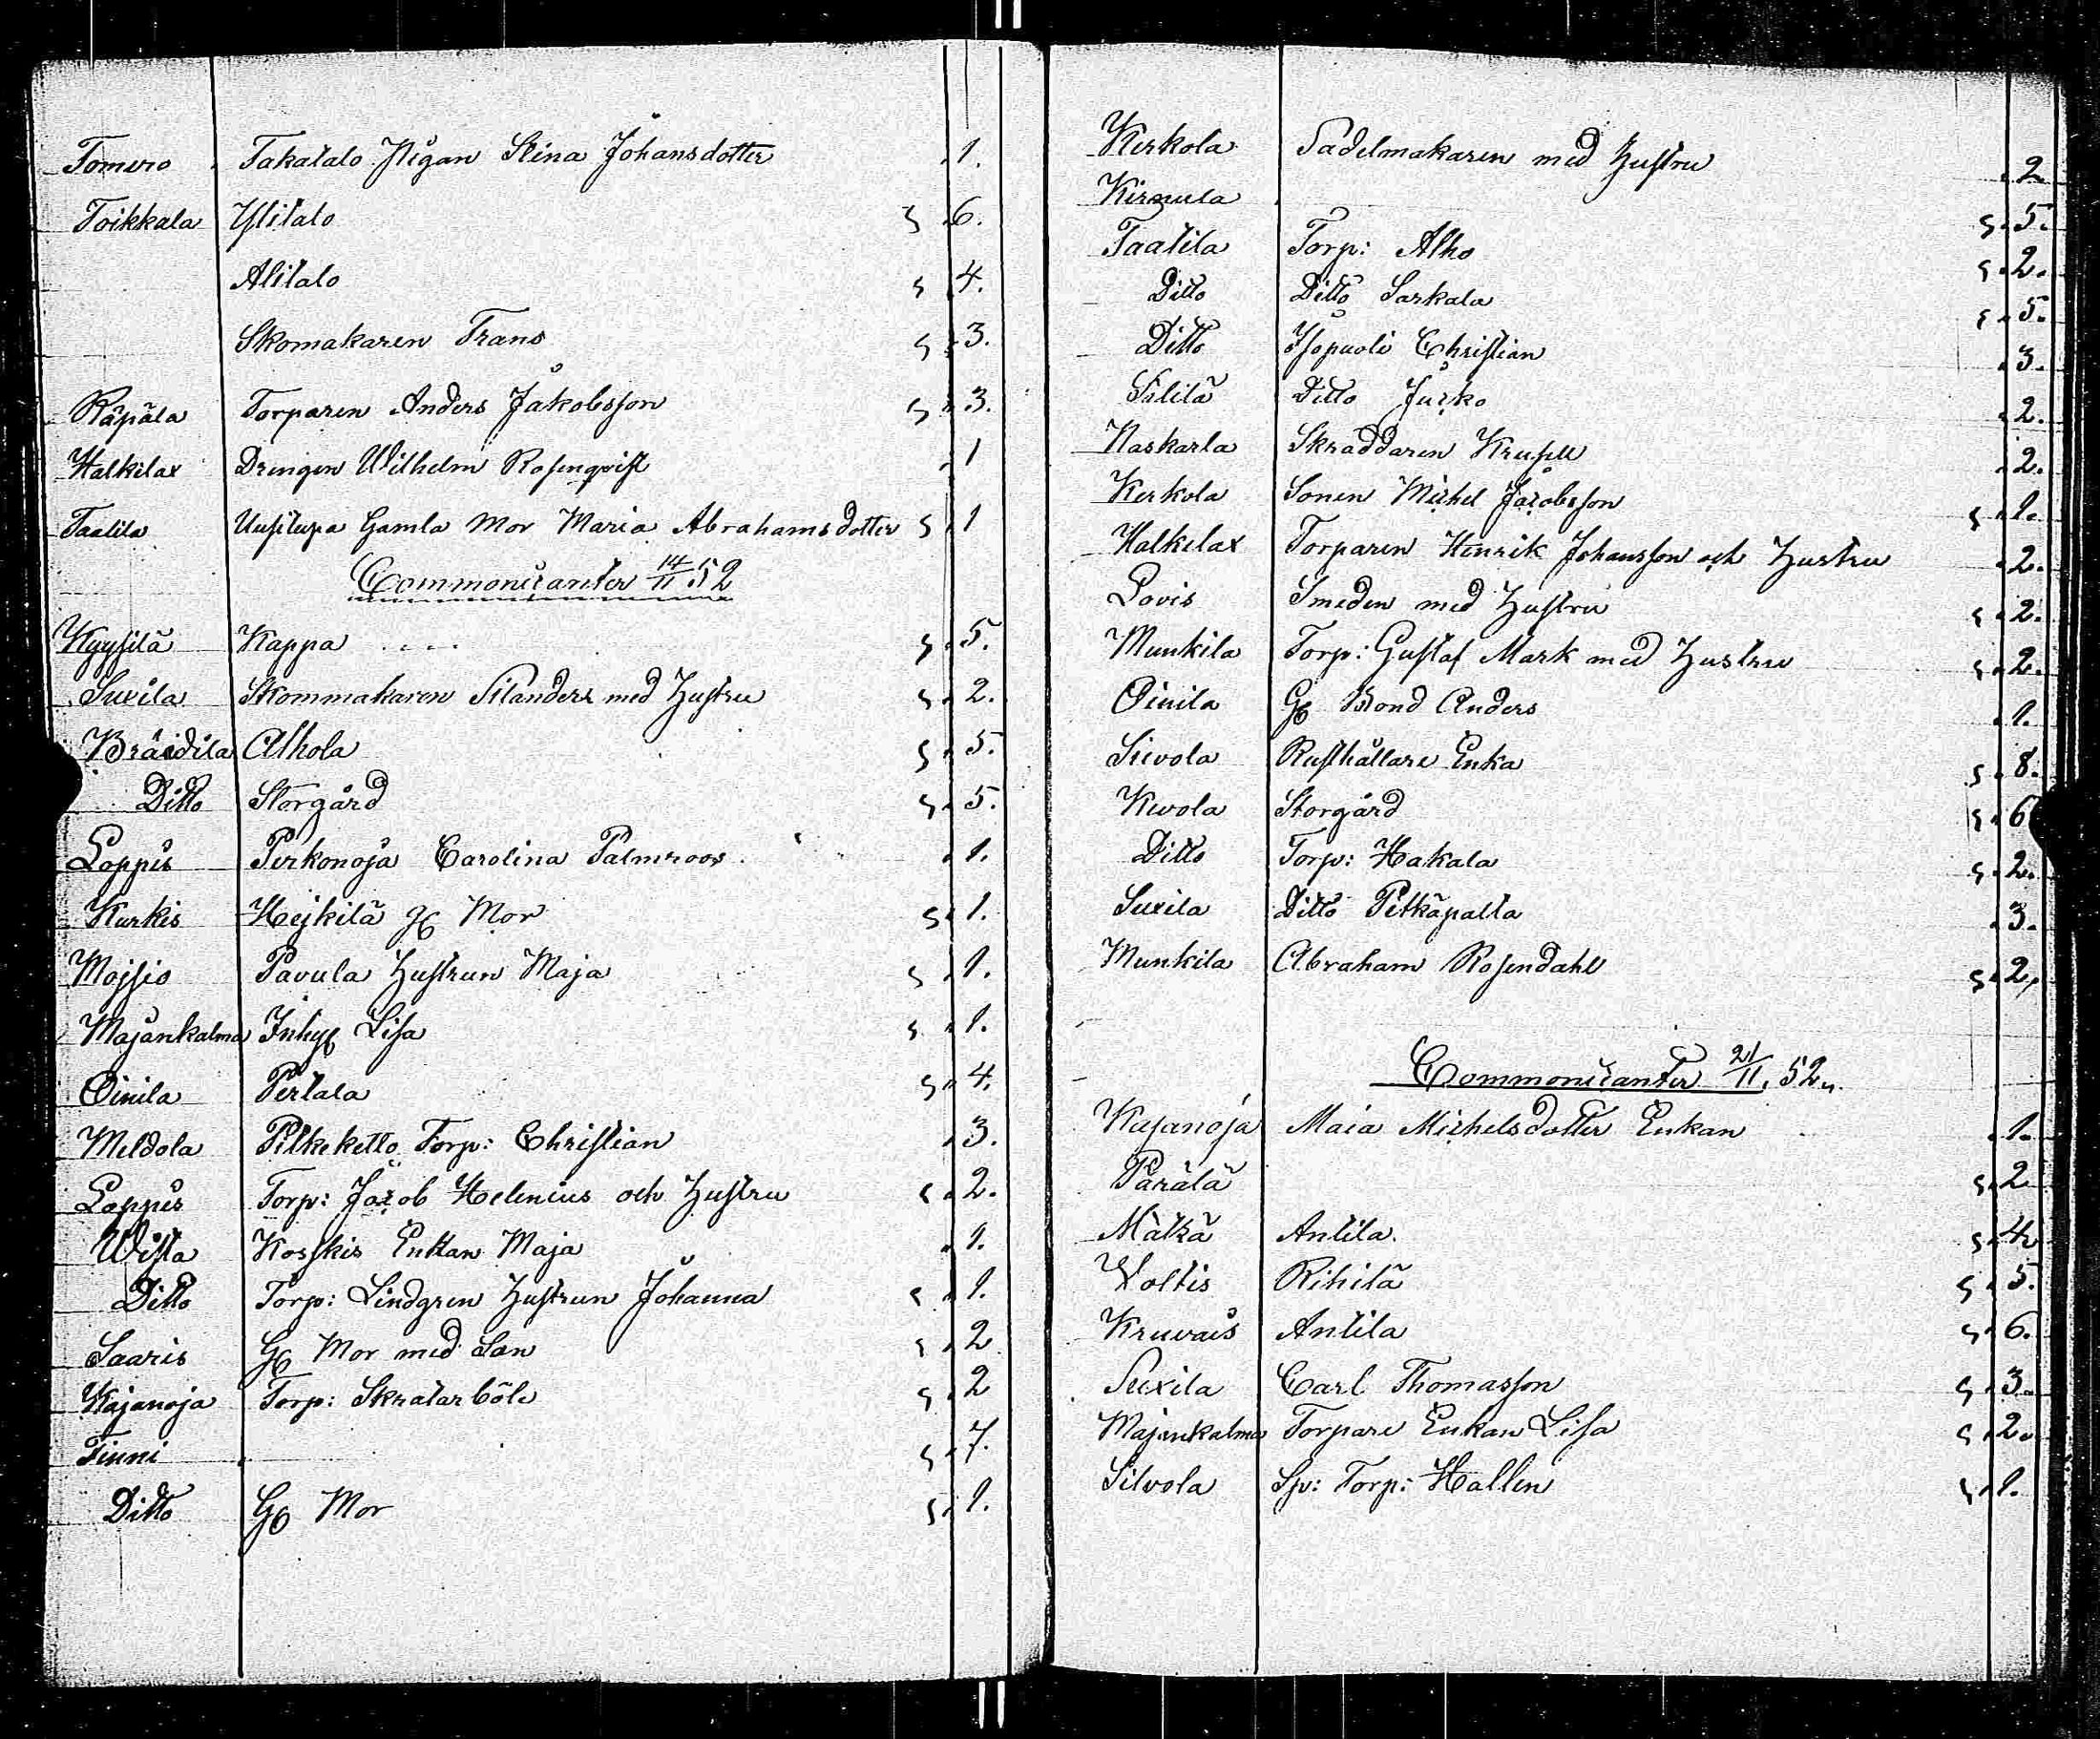 Tomero Takatalo Pigan Stina Johansdotter 1.
Toikkala Ylitalo s 6.
Alitalo s 4.
Skomakaren Frans s 3.
Räpälä Torparen Anders Jakobsson s 3.
Halkilax Drengen Wilhelm Rosenqvist 1
Taalila Gamla Mor Maria Abrahamsdotter s 1
Commonicanter 14/11 52
Kyysilä Kappa .... s 5.
Suxila Skommakaren Silanders med Hustru s 2.
Bräidila Alhola s 5.
Ditto Storgård s 5.
Loppis Perkonoja Carolina Palmroos. 1.
Kurkis Hejkilä Gl Mor s 1.
Mojsio Pavula Hustrun Maja s 1.
Majankalma Inhys Lisa s 1.
Oinila Pertala s 4.
Meldola Pitkeketto Torp: Christian 3.
Loppis Torp: Jacob Helenius och Hustru s 2.
Wista Koskis Enkan Maja 1.
Ditto Torp: Lindgren Hustrun Johanna s 1.
Saaris Gl Mor med Son s 2
Kajanoja Torp: Skratarböle s 2
Finni s 7.
Ditto Gl Mor s 1.
Kerkola Sadelmakaren med Hustru 2
Kirmula s 5.
Taatila Torp: Alho s 2.
Ditto Ditto Sarkala s 5.
Ditto Ysopuoli Christian 3.
Sililä Ditto Jurko 2.
Naskarla Skräddaren 2.
Kerkola Sonen Michel Jacobsson s 1.
Halkelax Torparen Henrik Johansson och Hustru 2.
Lovis Smeden med Hustru s 2.
Munkila Torp: Gustaf Mark med Hustru s 2.
Oinila Gl Bond Anders 1.
Sievola Rusthållare Enka s 8.
Kivola Storgård s 6
Ditto Torp: Hakala s 2.
Suxila Ditto Pitkäpalta 3.
Munkila Abraham Rosendahl s 2,
Commonicanter 21/11. 52.
Kajanoja Maia Michelsdotter Enkan 1.
Pärälä s 2
Mälkä Antila. s 4
Voltis Rihilä s 5.
Kruvais Antila s 6.
Suxila Carl Thomasson s 3.
Majankalma Torpare Enkan Lisa s 2.
Silvola Sp: Torp: Hallen s 1.